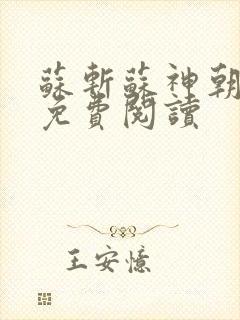 蘇斬蘇神朝
免費閱讀
王安憶